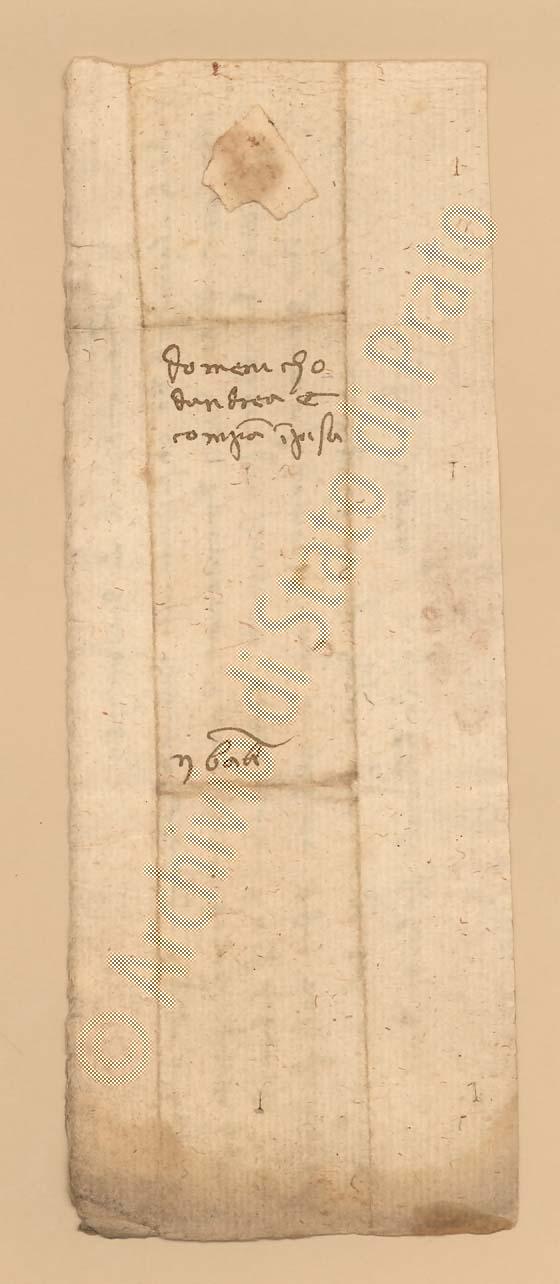 domenicho
dandrea e
compa in pisa
© Archivio di Stato di Prato